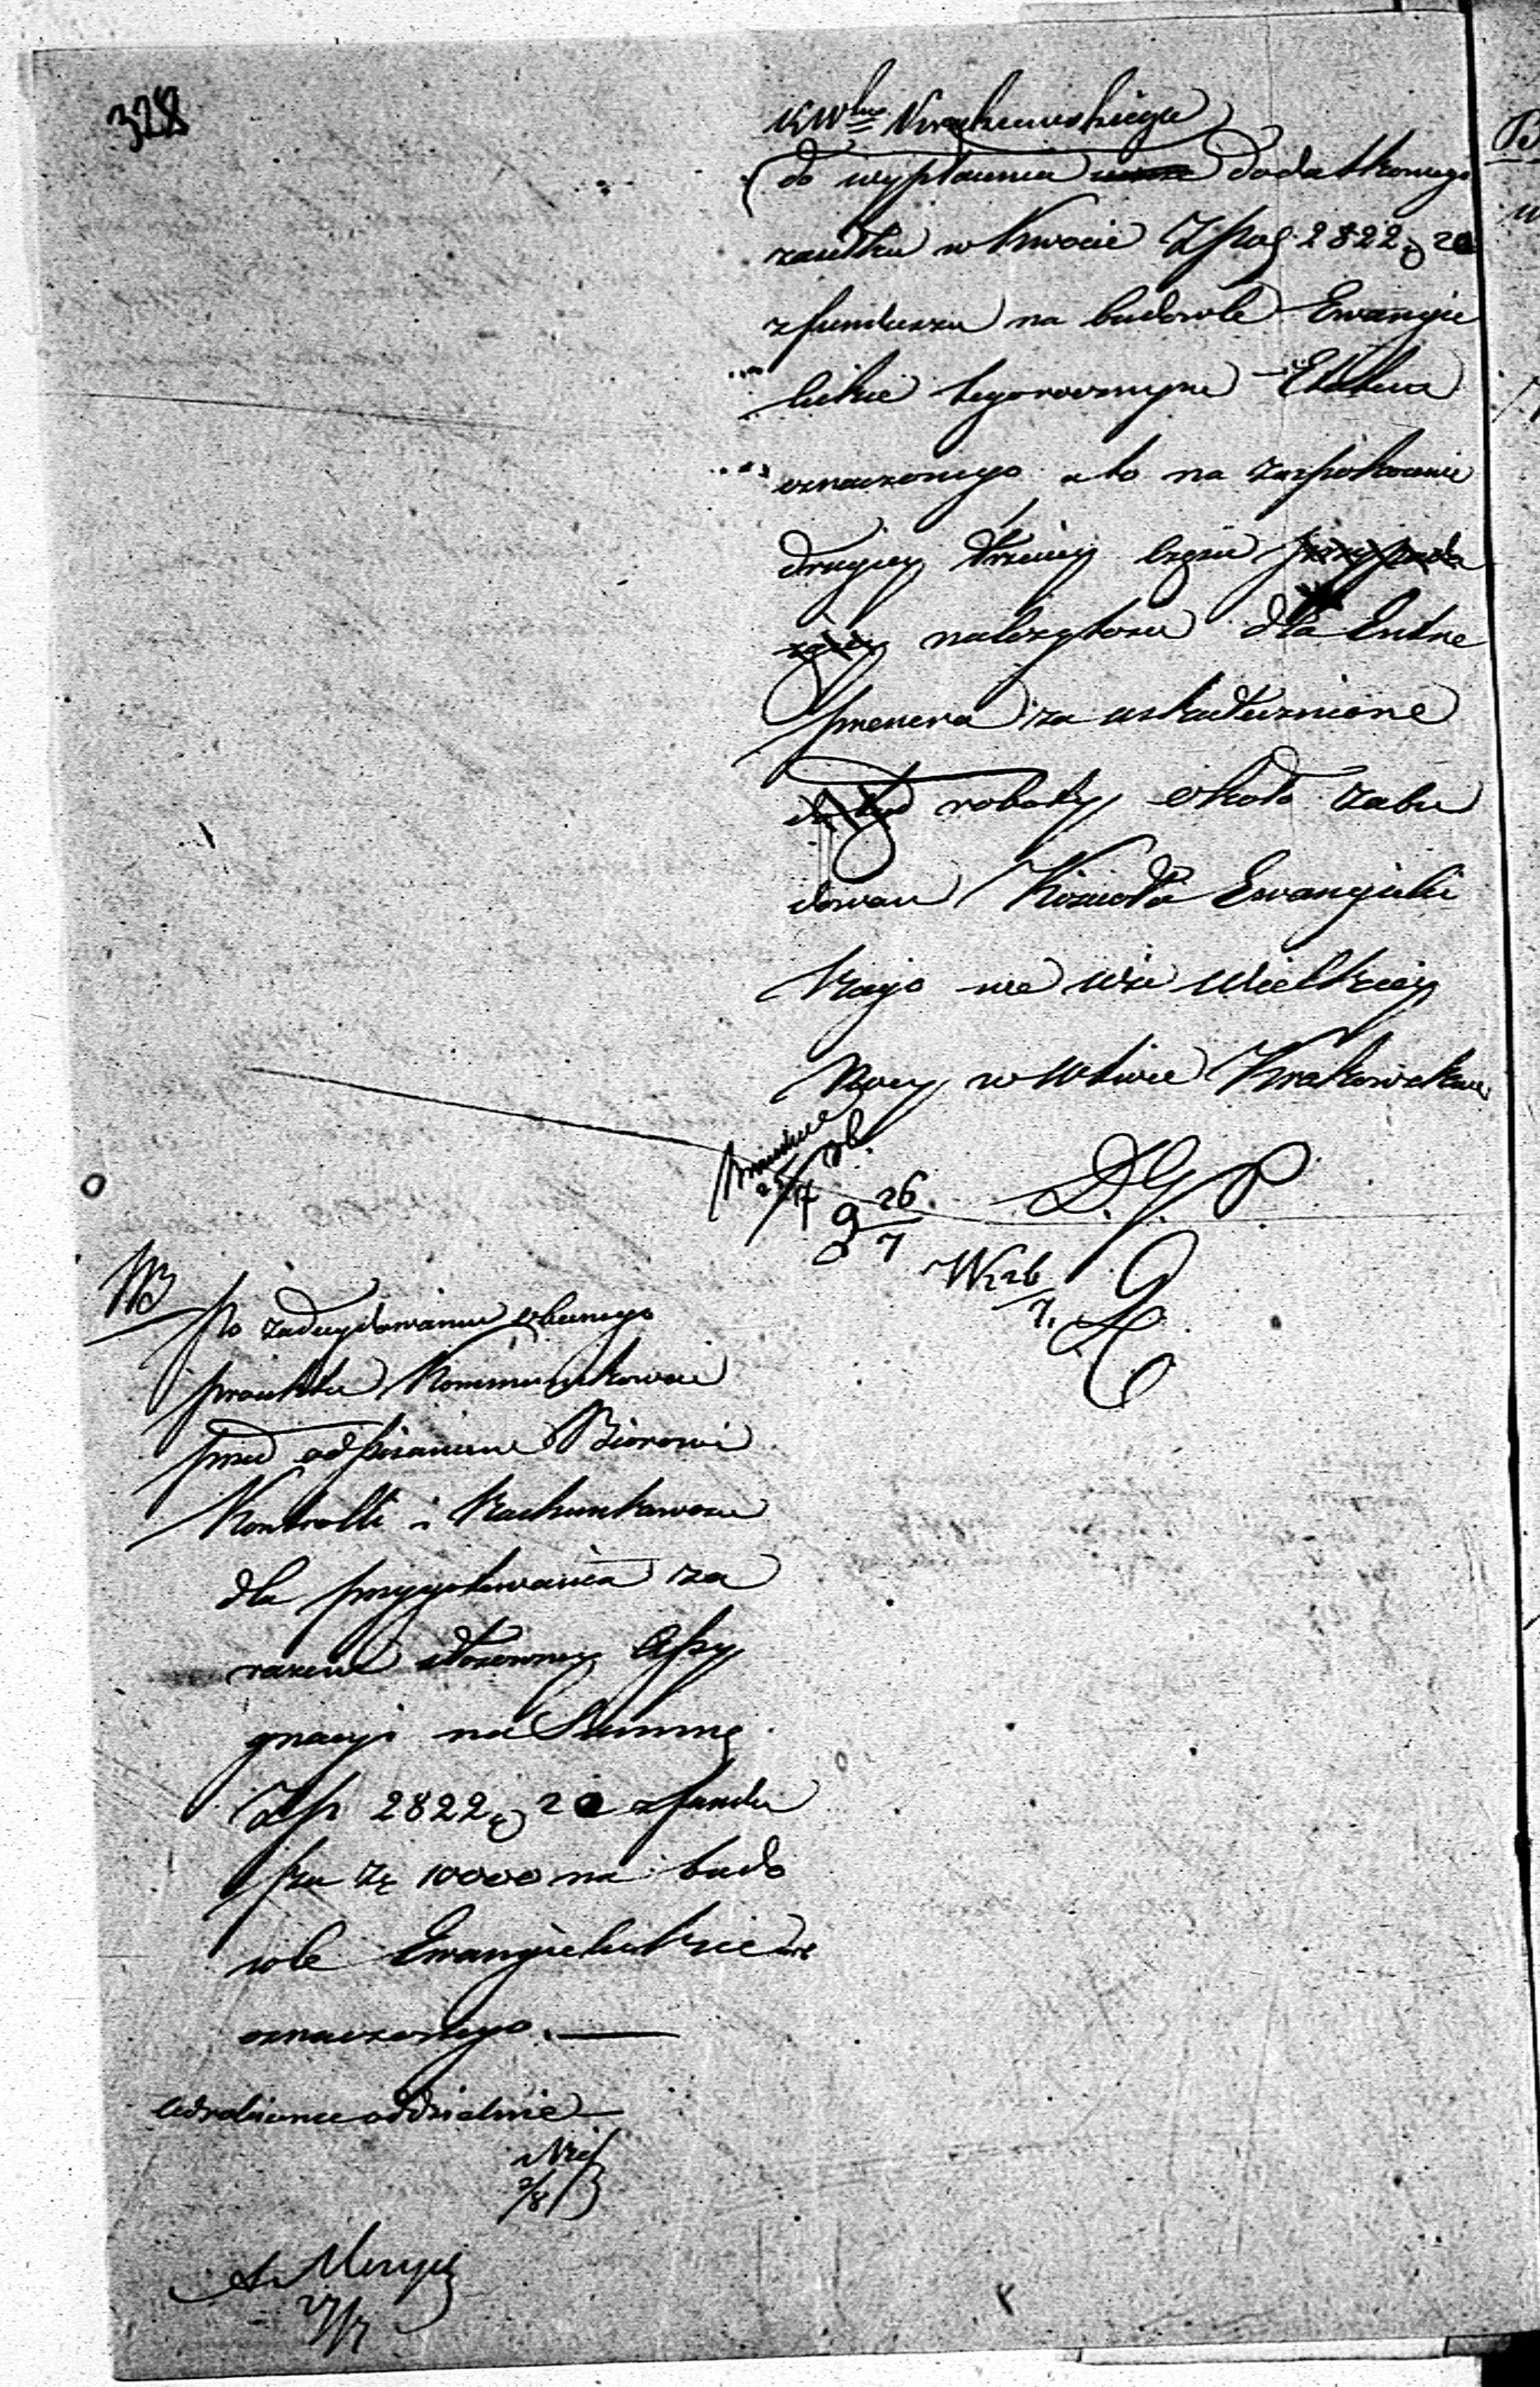 328
KWwa Krakowskiego
do wypłacenia dodatkowego
zasiłku w kwocie Zpol 2822 g 20
z funduszu na budowle Ewangie
lickie tegorocznym Etatem
oznaczonego a to na zaspokoienie
drugiey trzeciey części przypada
iącey należytosci dla Entre
prenera za uskutecznione
roboty około zabu
dowań Kościoła Ewangielic
kiego we wsi Wielkiey
Nocy w Wtwie Krakowskim
25/7
g 26/7
D.G.P
W 26/7.
NB
Po zadecydowaniu obecnego
proiektu kommunikować
przed odpisaniem Biorowi
Kontrolli i Rachunkowości
dla przygotowania za
razem stosowney Assy
gnacyi na Summę
Złp 2822 g 20 z fundu
szu Zł 10000 na budo
wle Ewangielickie
oznaczonego. —
Odrobiono oddzielnie
2/8
27/7